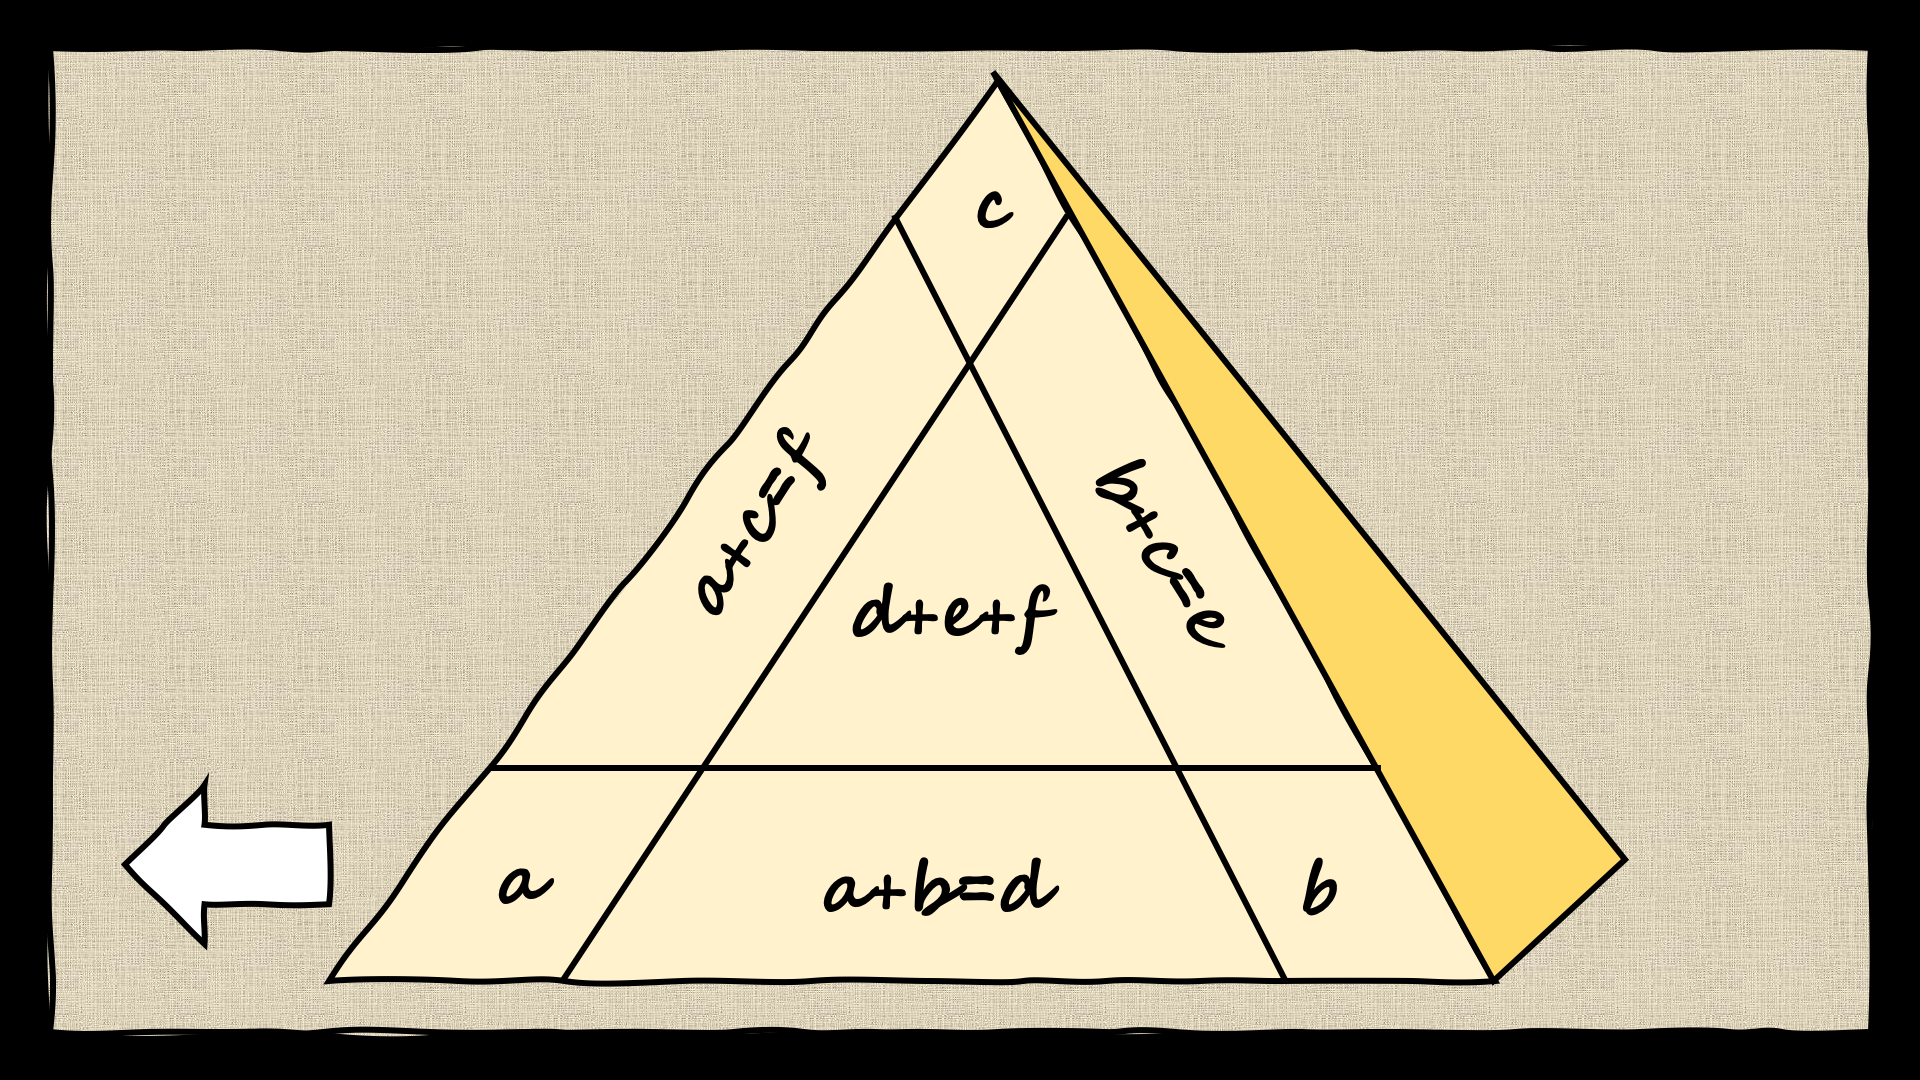 c
a+c=f
b+c=e
d+e+f
a
a+b=d
b